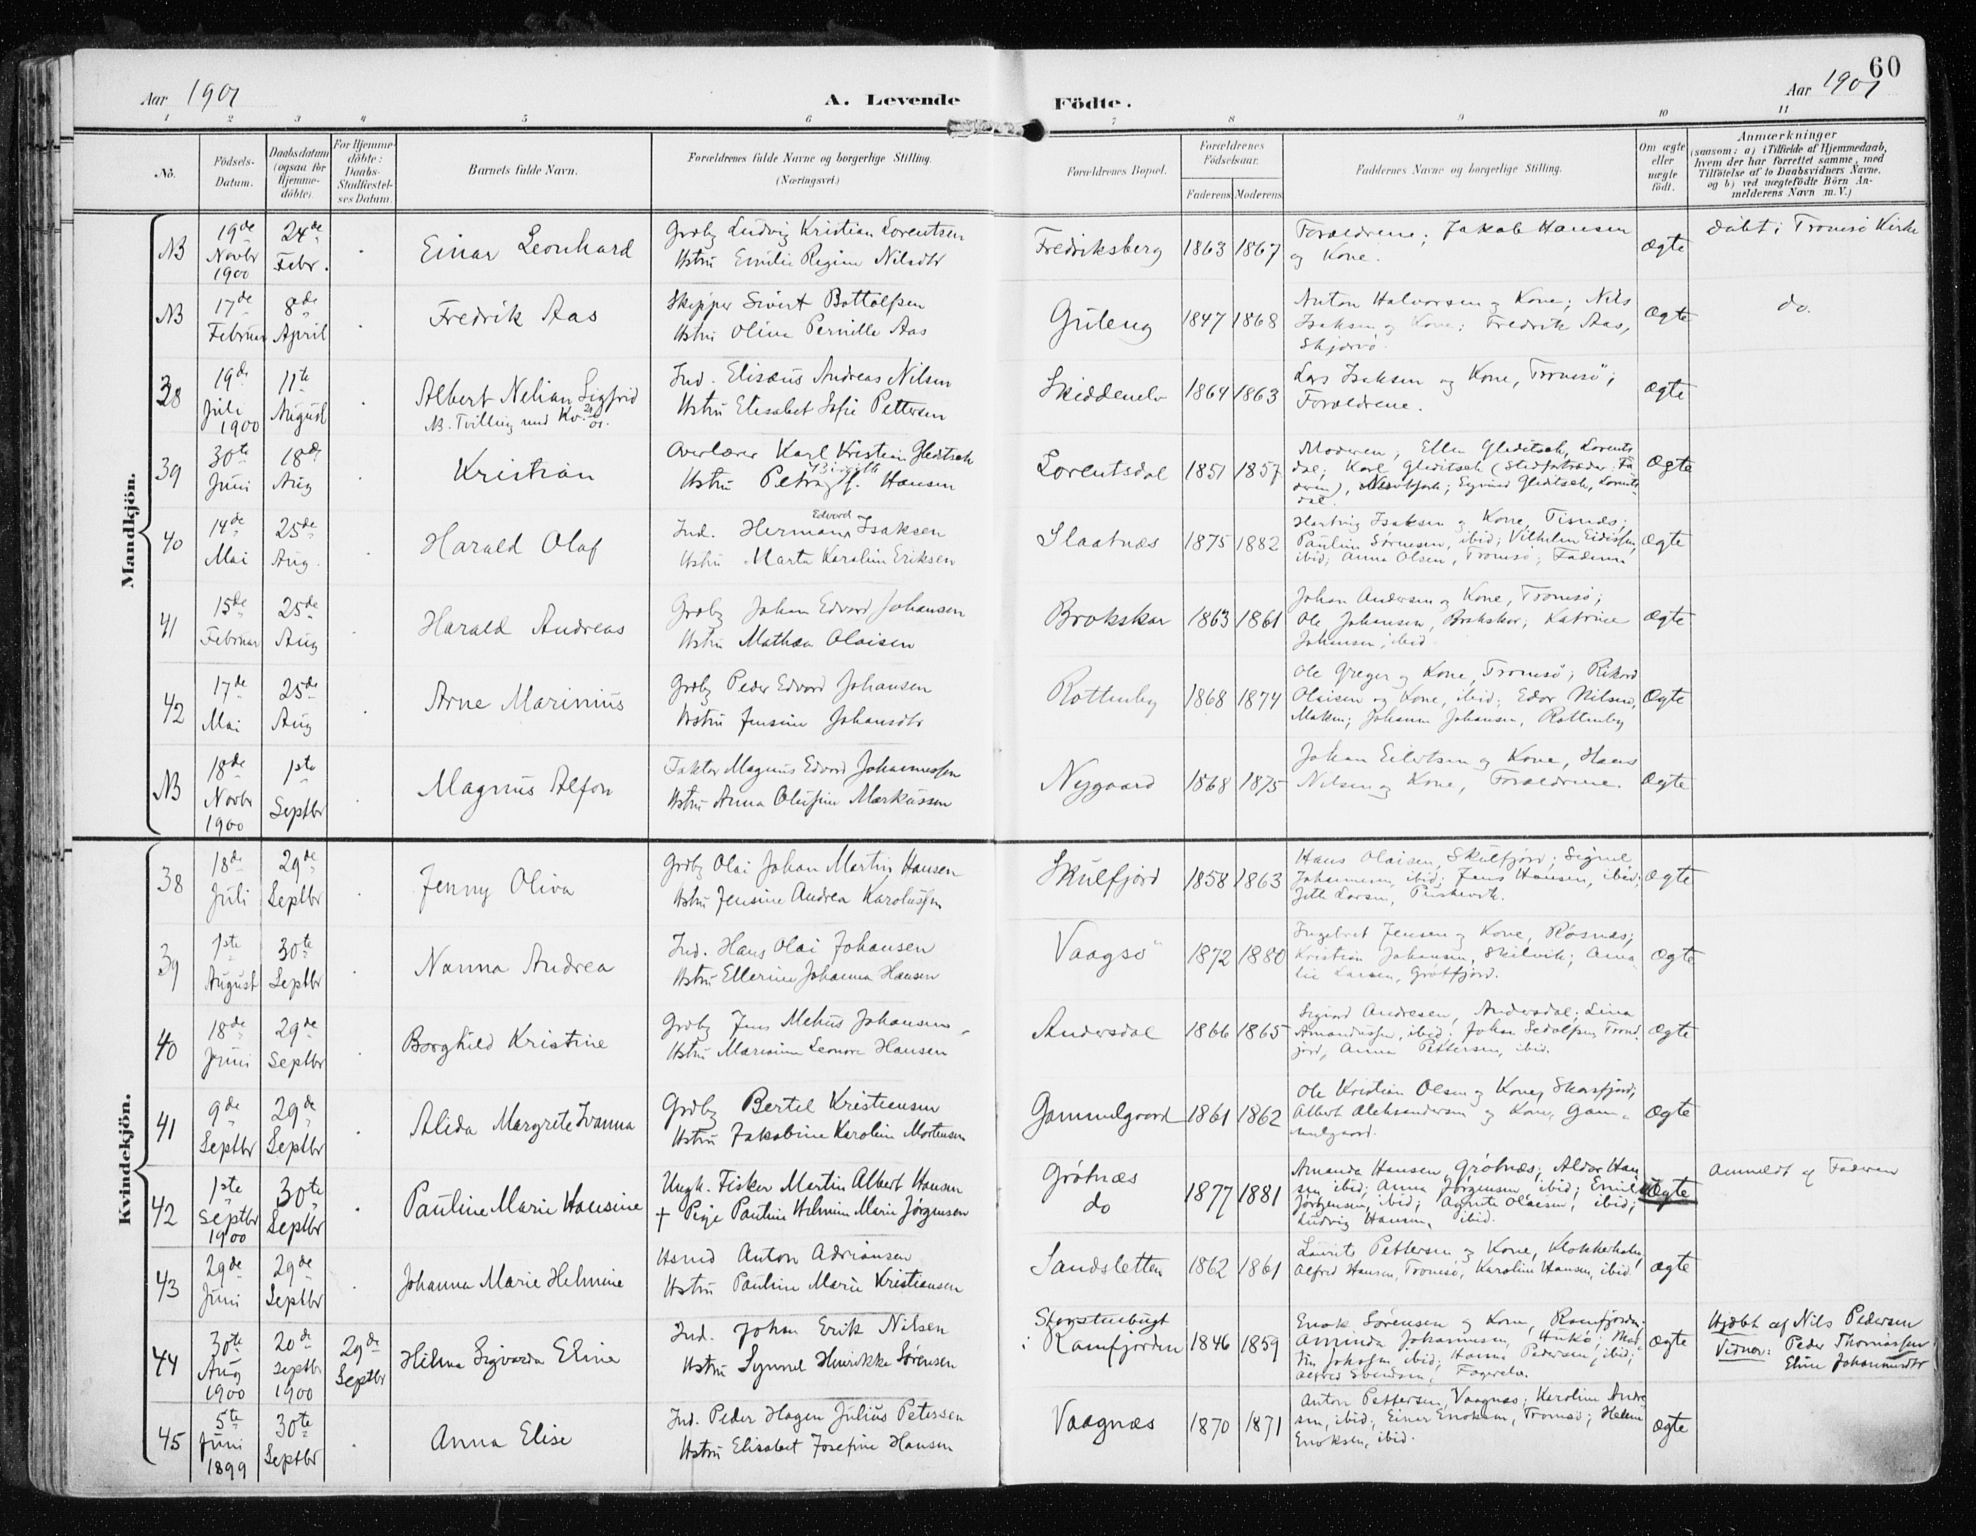 60
Aar 1901
A. Levende
Födte.
Aar 1901
1 2 3 4 5 6 7 8 9 10 11
No.
Födsels-
Datum.
Daabsdatum
(ogsaa for
Hjemme-
döbte).
For Hjemme-
döbte:
Daabs-
Stadfæstel-
ses Datum.
Barnets fulde Navn.
Forældrenes fulde Navne og borgerlige Stilling.
(Næringsvei)
Forældrenes Bopæl.
Forældrenes
Födselsaar.
Faderens Moderens
Faddernes Navne og borgerlige Stilling.
Om ægte
eller
uægte
födt.
Anmærkninger
(saasom: a) i Tilfælde af Hjemmedaab,
hvem der har forrettet samme, med
Tilföielse af to Daabsvidners Navne.
og b) ved uægtefödte Börn An-
melderens Navn m.V.)
Mandkjön.
NB
19de
Novbr
1900
24de
Febr.
Einar Leonhard
Grdbr Ludvig Kristian Lorentsen
Hstru Emilie Regine Nilsdtr
Fredriksberg
1863 1867
Forældrene; Jakob Hansen
og Kone.
Ægte
Døbt i Tromsø Kirke
NB
17de
Februar
8de
April
Fredrik Aas
Skipper Sivert Bottolfsen
Hstru Olina Pernille Aas
Guleng
1847 1868
Anton Halvorsen og Kone; Nils
Isaksen og Kone; Fredrik Aas,
Skjærvø.
Ægte
do.
38
19de
Juli
1900
11te
August
Albert Nelian Sigfrid
NB. Tvilling med Kv.
Ind. Elisæus Andreas Nilsen
Hstru Elisabet Sofie Pettersen
Skiddenelv
1864 1863
Lars Isaksen og Kone, Tromsö;
Forældrene.
Ægte
39
30te
Juni
18de
Aug
Kristian
Overlærer Karl Kristian Gleditsch
Hstru Petra f. Hansen
Lorentsdal
1851 1857
Moderen, Ellen Gleditsch, Lorents
dal; Karl Gleditsch (Stedfortræder: Fa
deren), Sigurd Gleditsch, Lorents-
dal.
Ægte
40
14de
Mai
25de
Aug.
Harald Olaf
Edvard
Ind. Herman Isaksen
Hstru Marta Karoline Eriksen
Slaatnæs
1875 1882
Hartvig Isaksen og Kone, Tisnæs;
Pauline Sørensen, ibid; Vilhelm Eidissen,
ibid; Anna Olsen, Tromsö; Faderen
Ægte
41
15de
Februar
25de
Aug
Harald Andreas
Grdbr Johan Edvard Johansen
Hstru Mathea Olaisen
Brokskar
1863 1861
Johan Andersen og Kone, Tromsö;
Ole Johansen, Brokskar; Katrine
Johansen, ibid
Ægte
42
17de
Mai
25de
Aug
Arne Marinius
Grdbr Peder Edvard Johansen
Hstru Jensine Johansdtr
Rottenby
1868 1874
Ole Greger og Kone, Tromsö; Rikard
Olaisen og Kone, ibid; Edor Nilsen,
Johanna Johansen, Rottenby
Ægte
NB
18de
Novbr
1900
1ste
Septbr
Magnus Alfon
Faktor Magnus Edvard Johannessen
Hstru Anna Olufine Markussen
Nygaard
1868 1875
Johan Eilertsen og Kone, Hans
Nilsen og Kone, Forældrene.
Ægte
Kvindekjön.
38
18de
Juli
29de
Septbr
Jenny Oliva
Grdbr Olai Johan Martin Hansen
Hstru Jensine Andrea Karolussen
Skulfjord
1858 1863
Hans Olaisen, Skulfjord; Signel
Johannesen, ibid; Jens Hansen, ibid;
Jette Larsen,
Ægte
39
1ste
August
30te
Septbr
Nanna Andrea
Ind. Hans Olai Johansen
Hstru Ellerine Johanna Hansen
Vaagsö
1872 1880
Ingebret Jensen og Kone, Røsnæs;
Kristian Johansen, Skilvik; Ama-
lie Larsen, Grøtfjord.
Ægte
40
18de
Juni
29de
Septbr
Borghild Kristine
Grdbr Jens Mekus Johansen
Hstru Mariane Leonore Hansen
Andersdal
1866 1865
Sigurd Andresen, Andersdal; Lina
Amandussen, ibid; Johan Sedolfsen,
Anna Pettersen, ibid.
Ægte
41
9de
Septbr
29de
Septbr
Alida Margrete Ivanna
Grdbr Bertel Kristiansen
Hstru Jakobine Karoline Mortensen
Gammelgaard
1861 1862
Ole Kristian Olsen og Kone, Skarsfjord;
Albert Aleksandersen og Kone, Gam-
melgaard.
Ægte
42
1ste
Septbr
1900
30te
Septbr
Pauline Marie Hansine
Ungk. Fisker Martin Albert Hansen
+ Pige Pauline Helmine Marie Jørgensen
Grötnæs
do
1877 1881
Amanda Hansen, Grötnæs; Aldor Han
sen, ibid; Anna Jørgensen ibid; Emil
Jørgensen, ibid; Agnete Olaisen, ibid;
Ludvig Hansen, ibid.
uægte
anmeldt af Faderen
43
29de
Juni
29de
Septbr
Johanna Marie Helmine
Hsmd Anton Adriansen
Hstru Pauline Marie Kristiansen
Sandsletten
1862 1861
Laurits Pettersen og Kone, Klokkerholm,
Alfred Hansen, Tromsö, Karoline Hansen, ibid.
Ægte
44
30te
Aug
1900
20de
Septbr
1900
29de
Septbr
Hilma Sigvarda Eline
Ind. Johan Erik Nilsen
Hstru Synnel Henrikke Sørensen
Storstenbugt
i Ramfjorden
1846 1859
Enok Sørensen og Kone, Ramfjorden;
Aminda Johannesen,
Hanna Pedersen, ibid;
Alfred Svendsen, Fagerelv.
Ægte
Hjdøbt af Nils Pedersen
Vidner: Peder Thomassen
Eline Johannesdtr
45
5te
Juni
1899
30te
Septbr
Anna Elise
Ind. Peder Hagen Julius Petersen
Hstru Elisabet Josefine Hansen
Vaagnæs
1870 1871
Anton Pettersen, Vaagnæs; Karoline Andre
sen, ibid; Einar Enoksen, Tromsø; Helene
Enoksen, ibid.
Ægte